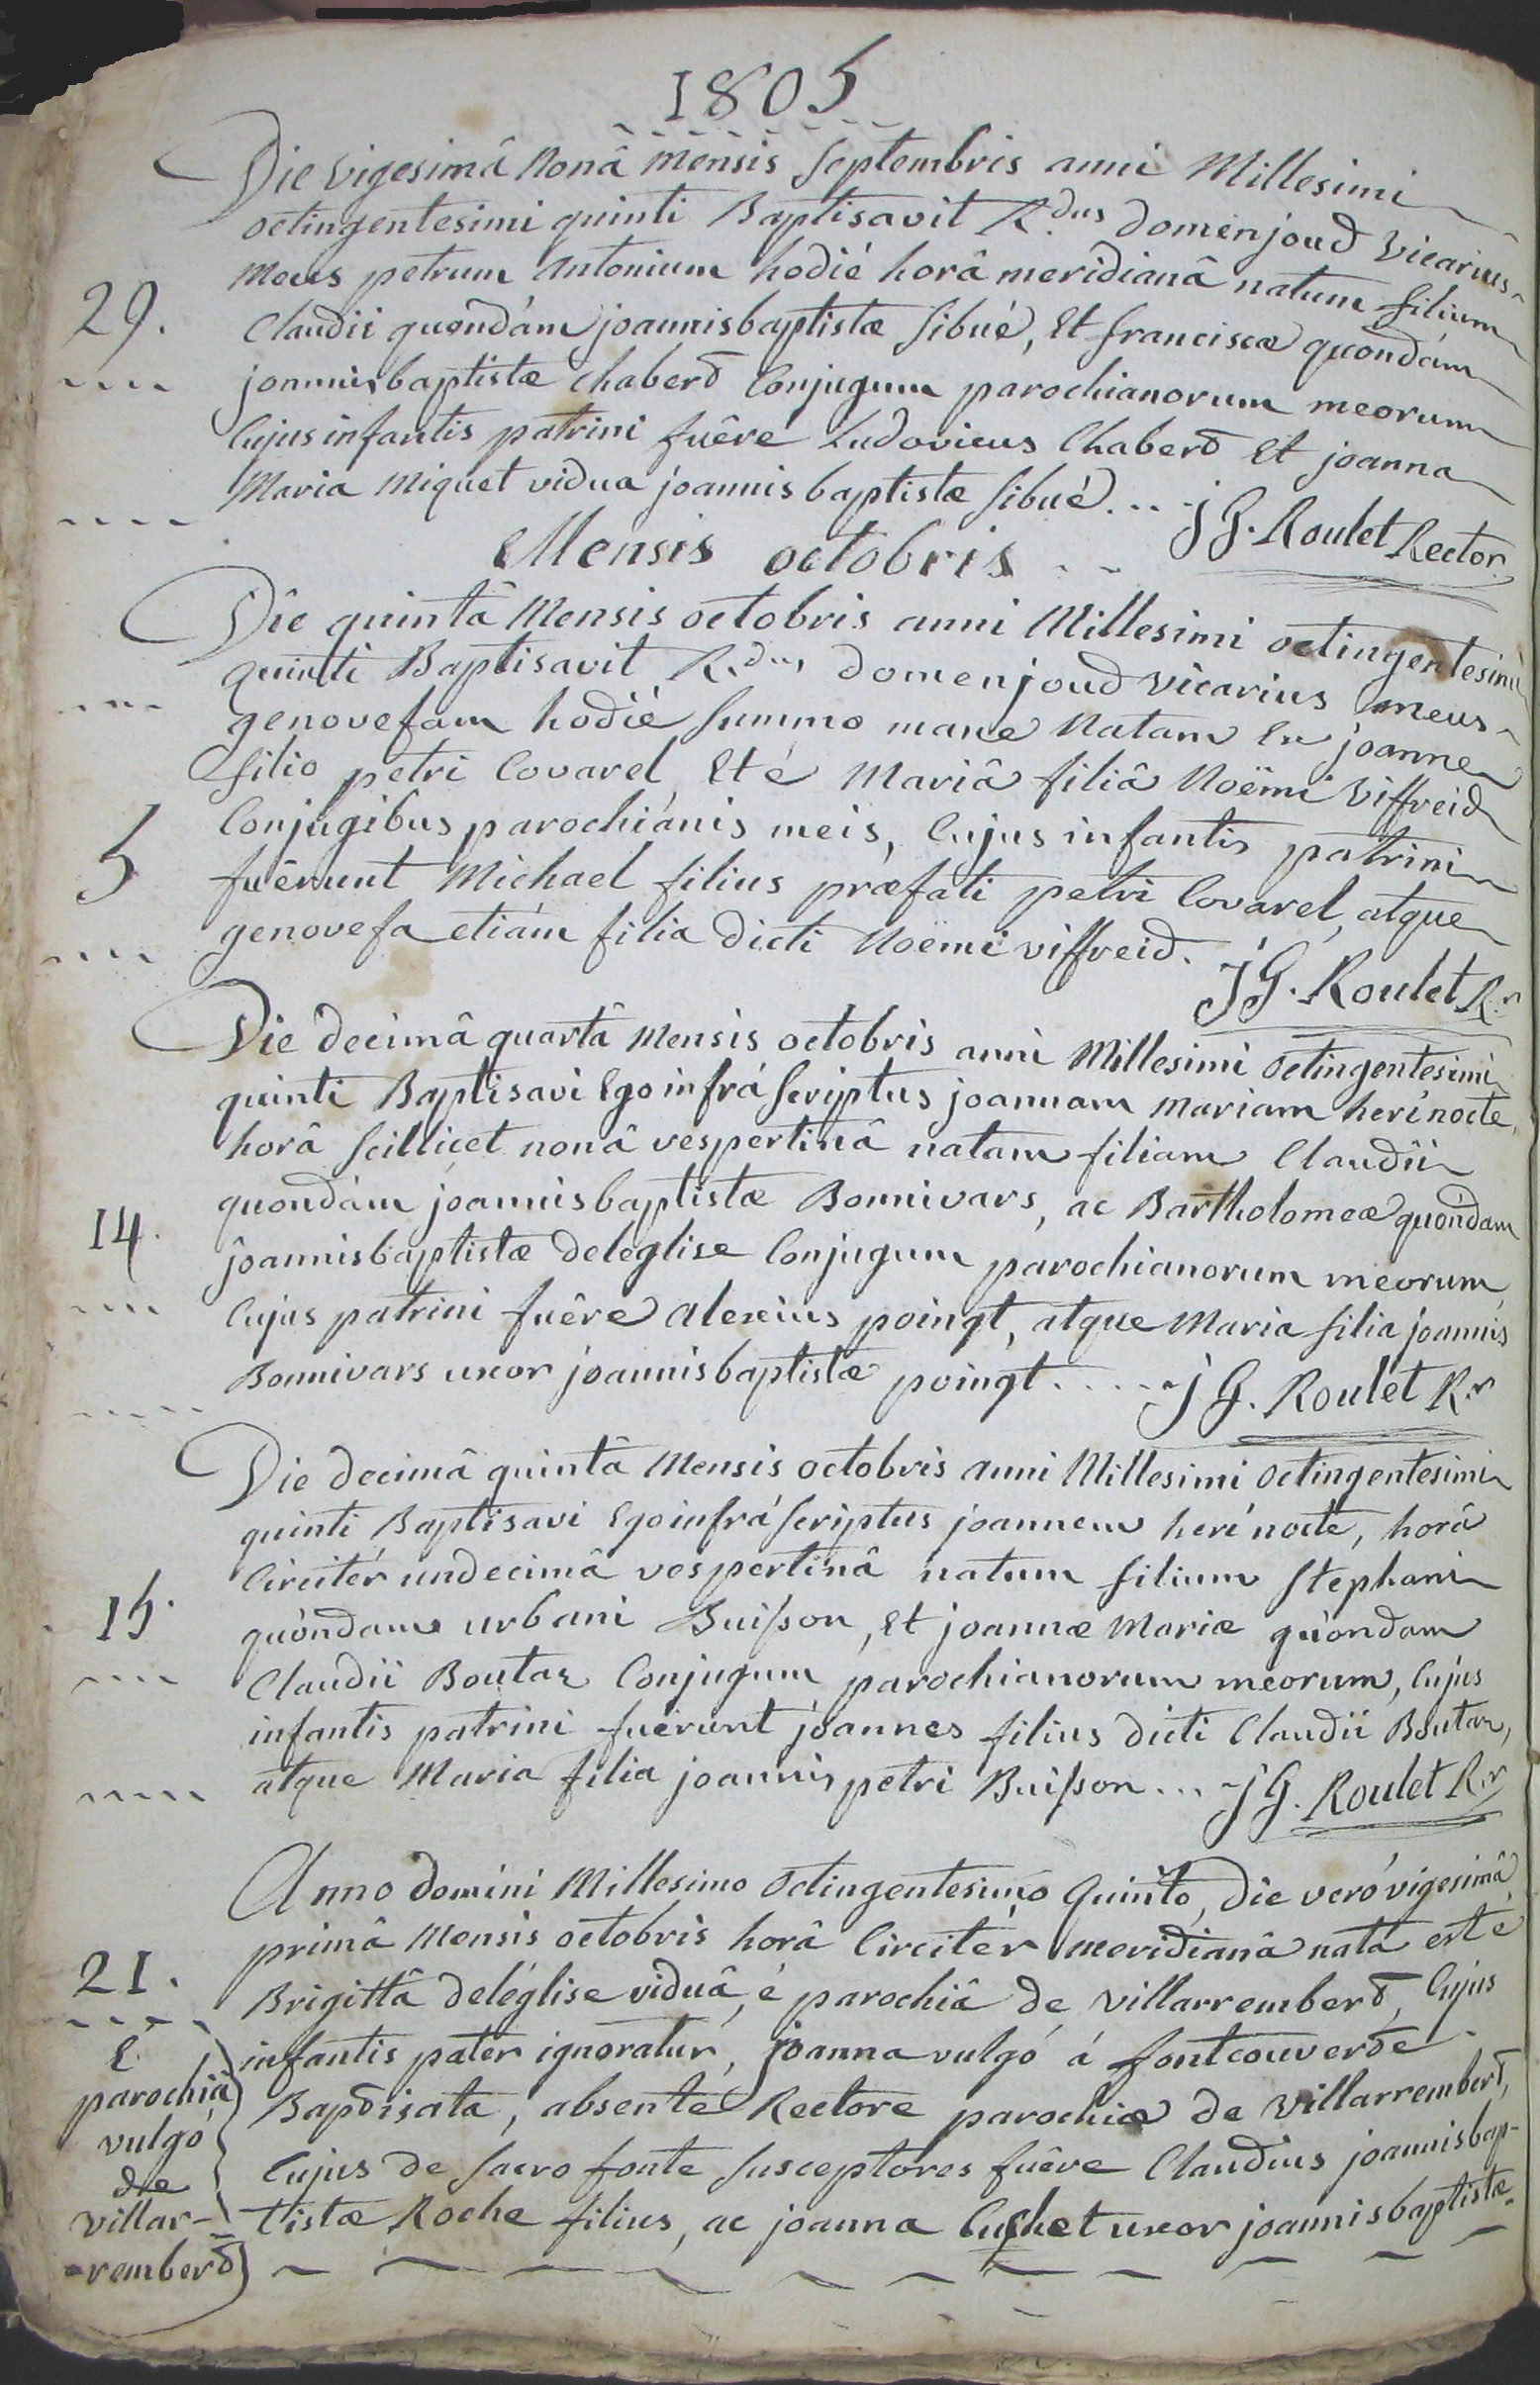 1805
Die vigesimâ nonâ mensis septembris anni Millesimi
octingentesimi quinti Baptisavit R.dus domenjoud vicarius
meus petrum antonium hodié horâ meridianâ natum filium
29.
Claudii quondám joannisbaptistæ sibué, Et franciscæ quondám
joannisbaptistæ chaberd Conjugum parochianorum meorum
Cujus infantis patrini fuêre Ludovicus Chaberd Et joanna
Maria Miquet vidua joannis baptistæ sibué... jG. Roulet Rector
Mensis octobris
Die quintâ Mensis octobris anni Millesimi octingentesimi
quinti Baptisavit R.dus domenjoud vicarius meus
genovefam hodié summo mane natam Ex joanne
filio petri Covarel, Et é Mariâ filiâ Noëmi viffreid
5
Conjugibus parochiánis meis, Cujus infantis patrini
fuêrunt Michael filius præfati petri Covarel, atque
genovefa etiám filia dicti Noëmi viffreid. jG. Roulet R.r
Die decimâ quartâ Mensis octobris anni Millesimi octingentesimi
quinti Baptisavi Ego infrá scriptus joannam mariam herí nocte,
horâ scillicet nonâ vespertinâ natam filiam Claudii
14.
quondám joannisbaptistæ Bonnivars, ac Bartholomeæ quóndam
joannisbaptistæ deléglise Conjugum parochianorum meorum,
Cujus patrini fuêre alexius poingt, atque Maria filia joannis
Bonnivars uxor joannisbaptistæ poingt..... jG. Roulet R.r
Die decimâ quintâ Mensis octobris anni Millesimi octingentesimi
quinti Baptisavi Ego infrá scriptus joannem herí nocte, horâ
Circitér undecimâ vespertinâ natum filium stephani
15.
quóndam urbani Buisson, Et joannæ Mariæ quóndam
Claudii Boutaz Conjugum parochianorum meorum, Cujus
infantis patrini fuérunt joannes filius dicti Claudii Boutaz,
atque Maria filia joannis petri Buisson... jG. Roulet R.r
Anno domini Millesimo octingentesimo quinto, die veró vigesimâ
primâ Mensis octobris horâ Circiter meridianâ nata est é
21.
Brigittâ deléglise viduâ, é parochiâ de villarremberd, Cujus
infantis pater ignoratur, joanna vulgó á fontcouverde
Bapdisata, absente Rectore parochiæ de villarremberd,
Cujus de sacro fonte susceptores fuêre Claudius joannisbap-
tistæ Roche filius, ac joanna Cuchet uxor joannisbaptistæ
É
parochiâ
vulgó
de
villar-
-remberd